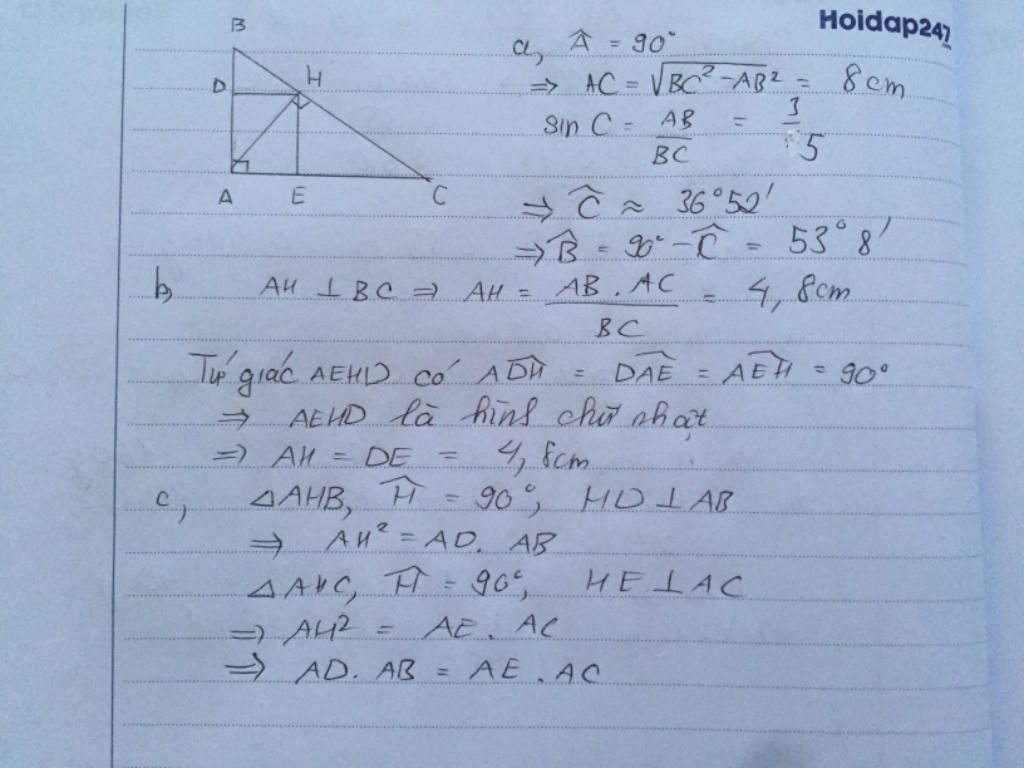 Hoidap247
B
D
H
A
E
C
a, Â = 90°
⇒ AC = √(BC² - AB²) = 8cm
sin C = AB/BC = 3/5
⇒ Ĉ ≈ 36°52'
⇒ B̂ = 90° - Ĉ = 53°8'
b, AH ⊥ BC ⇒ AH = (AB . AC)/BC = 4,8cm
Tứ giác AEHD có ADH̑ = DAȆ = AEH̑ = 90°
⇒ AEHD là hình chữ nhật
⇒ AH = DE = 4,8cm
c, △AHB, Ĥ = 90°, HD ⊥ AB
⇒ AH² = AD. AB
△AHC, Ĥ = 90°, HE ⊥ AC
⇒ AH² = AE. AC
⇒ AD. AB = AE . AC